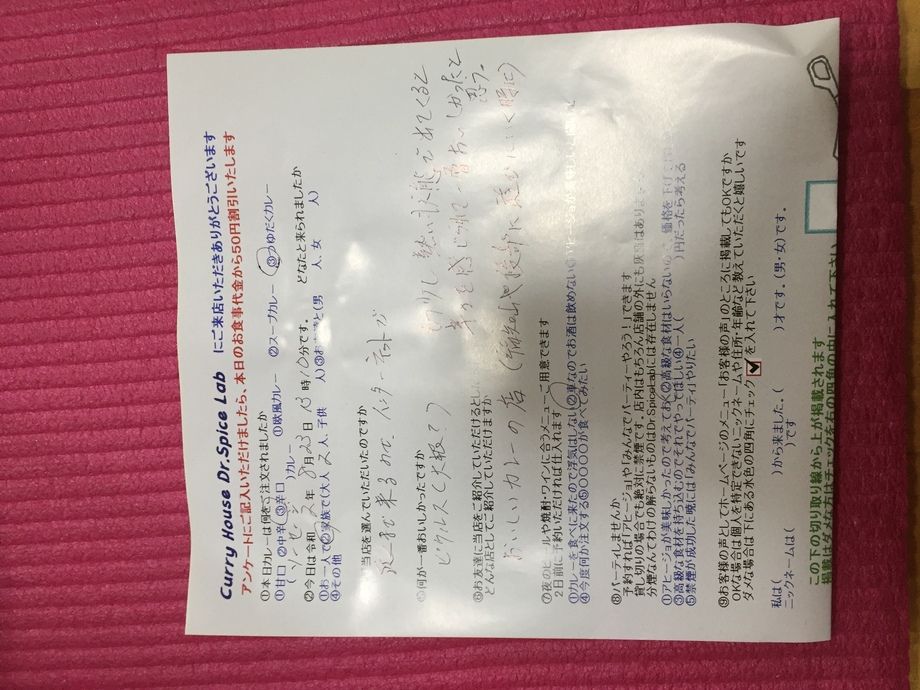 Curry House Dr.Spice Lab にご来店いただきありがとうございます
アンケートにご記入いただけましたら、本日のお食事代金から50円割引いたします
①本日カレーは何をご注文されましたか ①欧風カレー ②スープカレー ③つゆだくカレー
①甘口 ②中辛 ③辛口 ( )カレー
②今日は令和 2年 月23日 13時10分です。 どなたと来られましたか
①お一人で②家族で(大人 2人、子供 人)③お 達と(男 人、女 人)
④その他
当店を選んでいただいたのですか
来るのに、インターネットが
⑤何が一番おいしかったですか
ピクルスと大根?
熱い状態で出てくると
幸せを感じ 一番おいしかったと
思う。
⑥お友達に当店をご紹介していただけると
どんな店としてご紹介していただけますか
おいしいカレーの店
⑦夜のビールや焼酎・ワインに合うメニューご用意できます
2日前に予約いただければ仕入れます
①カレーを食べに来たので浮気はしない ②車なのでお酒は飲めない
④今度何か注文する⑤〇〇〇〇が食べてみたい
⑧パーティしませんか
予約すれば「アヒージョ」「みんなでパーティーやろう!」できます
貸し切りの場合でも絶対に禁煙です。店内はもちろん店舗の外にも灰皿はありま
分煙なんてわけの解らないものはDr.Spicelabには存在しません
①アヒージョが美味しかったので考えておく②高級な食材はいらないの 、価格を下げ
③高級な食材を持ち込むのでそれでやってほしい④一人( )円だったら考える
⑤禁煙が成功した晩には「みんなでパーティ」やりたい
⑨お客様の声としてホームページのメニュー「お客様の声」のところに掲載してもOKですか
OKな場合は個人を特定できないニックネームや住所・年齢など教えていただくと嬉しいです
ダメな場合は下にある水色の四角にチェック を入れて下さい
私は( )から来ました。( )才です。(男・女)です。
ニックネームは( )です
この下の切り取り線から上が掲載されます
掲載はダメな方はチェックを右の四角の中に入れて下さい